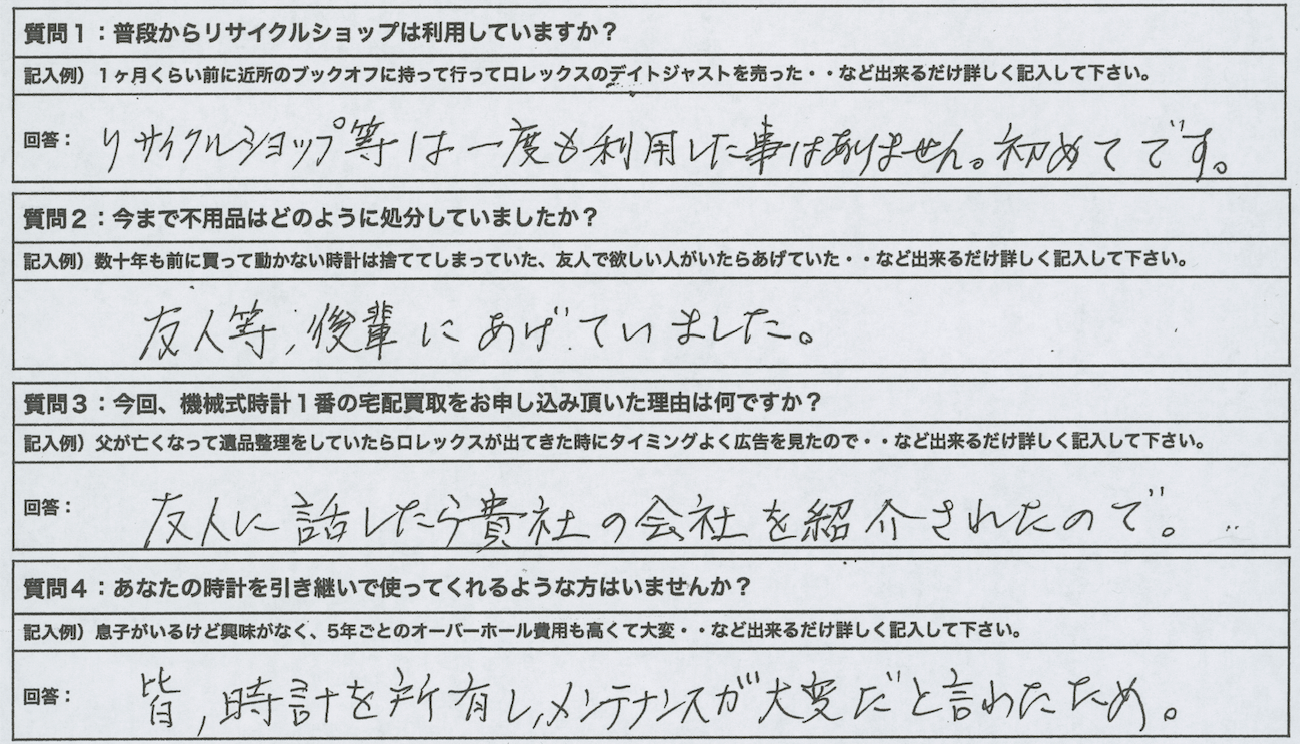 質問1：普段からリサイクルショップは利用していますか？
記入例）1ヶ月くらい前に近所のブックオフに持って行ってロレックスのデイトジャストを売った・・など出来るだけ詳しく記入して下さい。
回答： リサイクルショップ等は一度も利用した事はありません。初めてです。
質問2：今まで不用品はどのように処分していましたか？
記入例）数十年も前に買って動かない時計は捨ててしまっていた、友人で欲しい人がいたらあげていた・・など出来るだけ詳しく記入して下さい。
友人等、後輩にあげていました。
質問3：今回、機械式時計1番の宅配買取をお申し込み頂いた理由は何ですか？
記入例）父が亡くなって遺品整理をしていたらロレックスが出てきた時にタイミングよく広告を見たので・・など出来るだけ詳しく記入して下さい。
回答： 友人に話したら貴社の会社を紹介されたので。
質問4：あなたの時計を引き継いで使ってくれるような方はいませんか？
記入例）息子がいるけど興味がなく、5年ごとのオーバーホール費用も高くて大変・・など出来るだけ詳しく記入して下さい。
回答： 皆、時計を所有し、メンテナンスが大変だと言わたため。